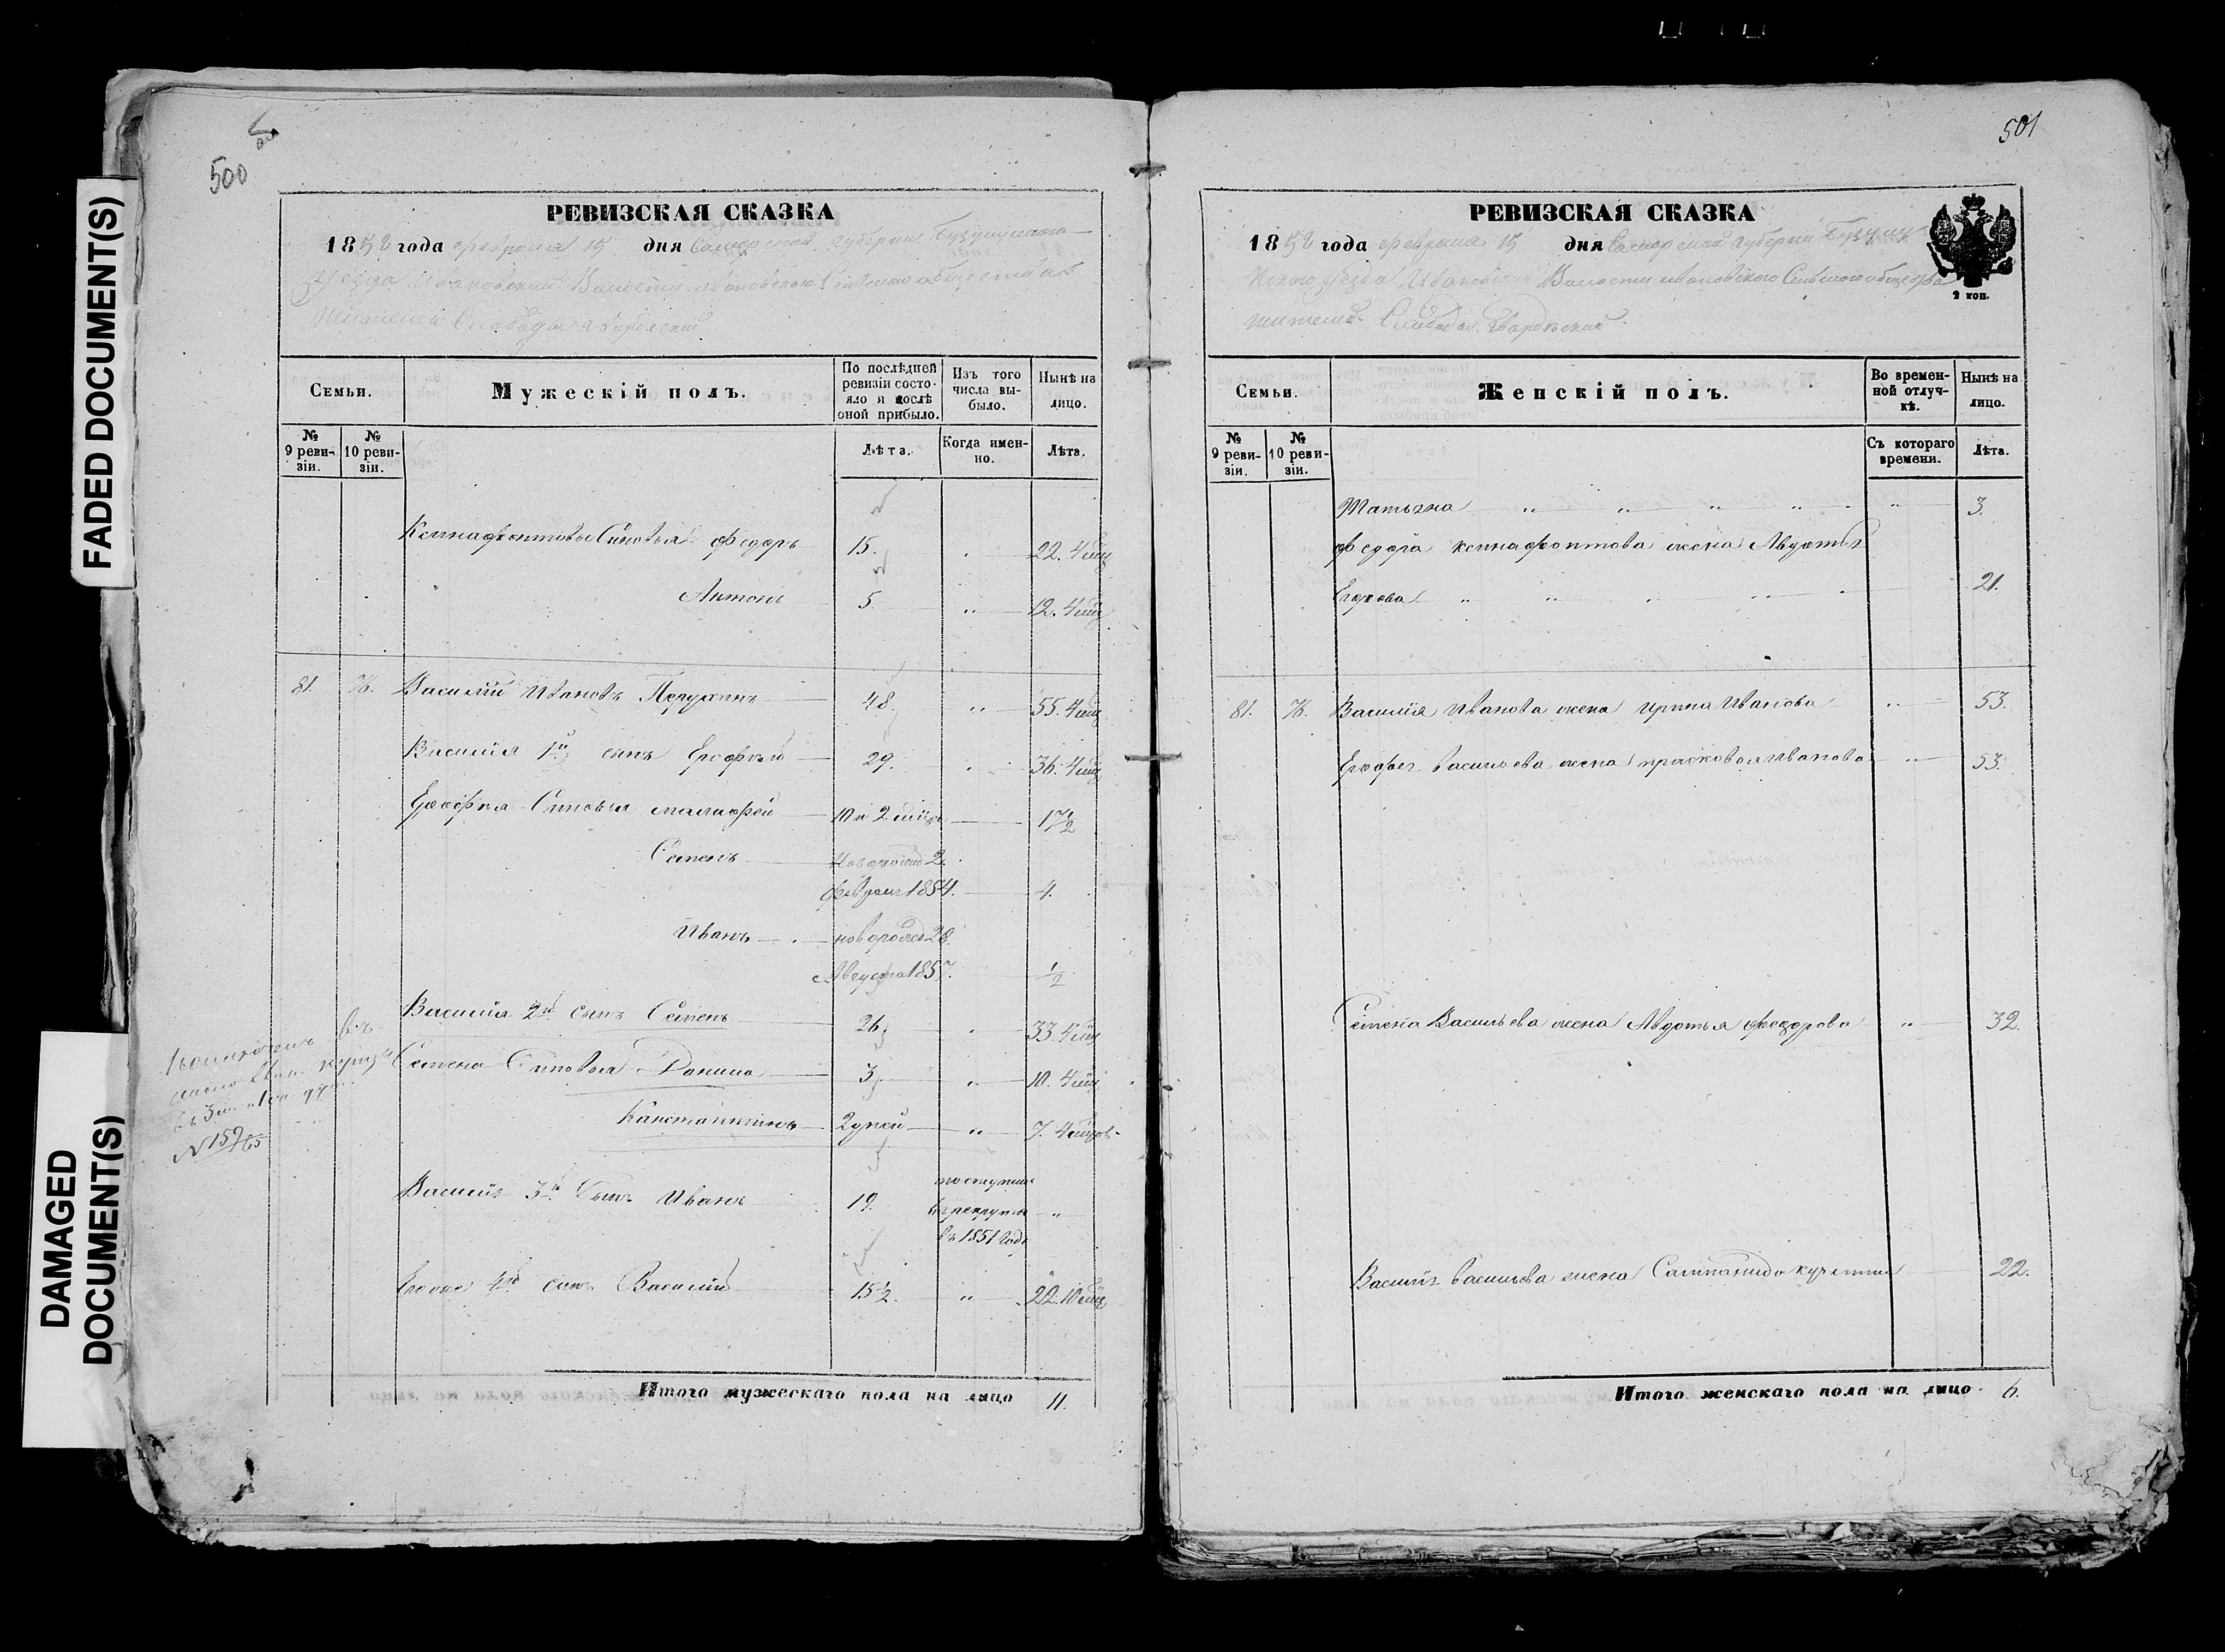 FADED DOCUMENT(S)
DAMAGED
DOCUMENT(S)
500
РЕВИЗСКАЯ СКАЗКА
1858 года февраля 15 дня Самарской губернии Бузулукского
Уезда Ивановской Волости Ивановского Сельского общества
Жителей Слободы
Семьи.
Мужескій полъ.
По послѣдней ревизіи состояло и послѣ оной прибыло.
Изъ того числа выбыло.
Нынѣ на лицо.
№ 9 ревизіи.
№ 10 ревизіи.
Лѣта.
Когда именно.
Лѣта.
Ксенафонтовы Сыновья Федоръ 15. 22. 4 мѣц
Антонъ 5 " 12. 4 мѣц
81. 76. Василий Ивановъ 48. " 55. 4 мѣц
Василия 1й сынъ Ерофѣй 29. 36. 4 мѣц
Ерофѣя Сыновья малафей 10 и 2 мѣц 17 1/2
Семенъ новорожд 2.
февраля 1854. 4.
Иванъ новорожд 28.
Августа 1857. 1/2
Василия 2й сынъ Семенъ 26 33. 4 мѣц
Семена Сыновья Данило 3 " 10. 4 мѣц
Канстантинъ 2 дней " 7. 4 мѣцов
№ 159/65
Василия 3й Сынъ Иванъ 19. поступил
в рекруты "
въ 1851 году
4й сынъ Василий 15 1/2. " 22. 10 мѣц
Итого мужескаго пола на лицо 11.
501
РЕВИЗСКАЯ СКАЗКА
1858 года февраля 15 дня Самарской губернии Бузулу
кского уезда Ивановской Волости ивановского Сельского общества
жителей Слободы
2 коп.
Семьи.
Женскій полъ.
Во временной отлучкѣ.
Нынѣ на лицо.
№ 9 ревизіи.
№ 10 ревизіи.
Съ котораго времени.
Лѣта.
Татьяна " " " " " 3.
Федора ксенафонтова жена Авдотья
Егорова " " " " 21.
81. 76. Василия Иванова жена Ирина Иванова " 53.
Ерофея Васильева жена прасковья Иванова " 53.
Семена Васильева жена Авдотья федорова " 32.
Василия Васильева жена 22.
Итого женскаго пола на лицо 6.